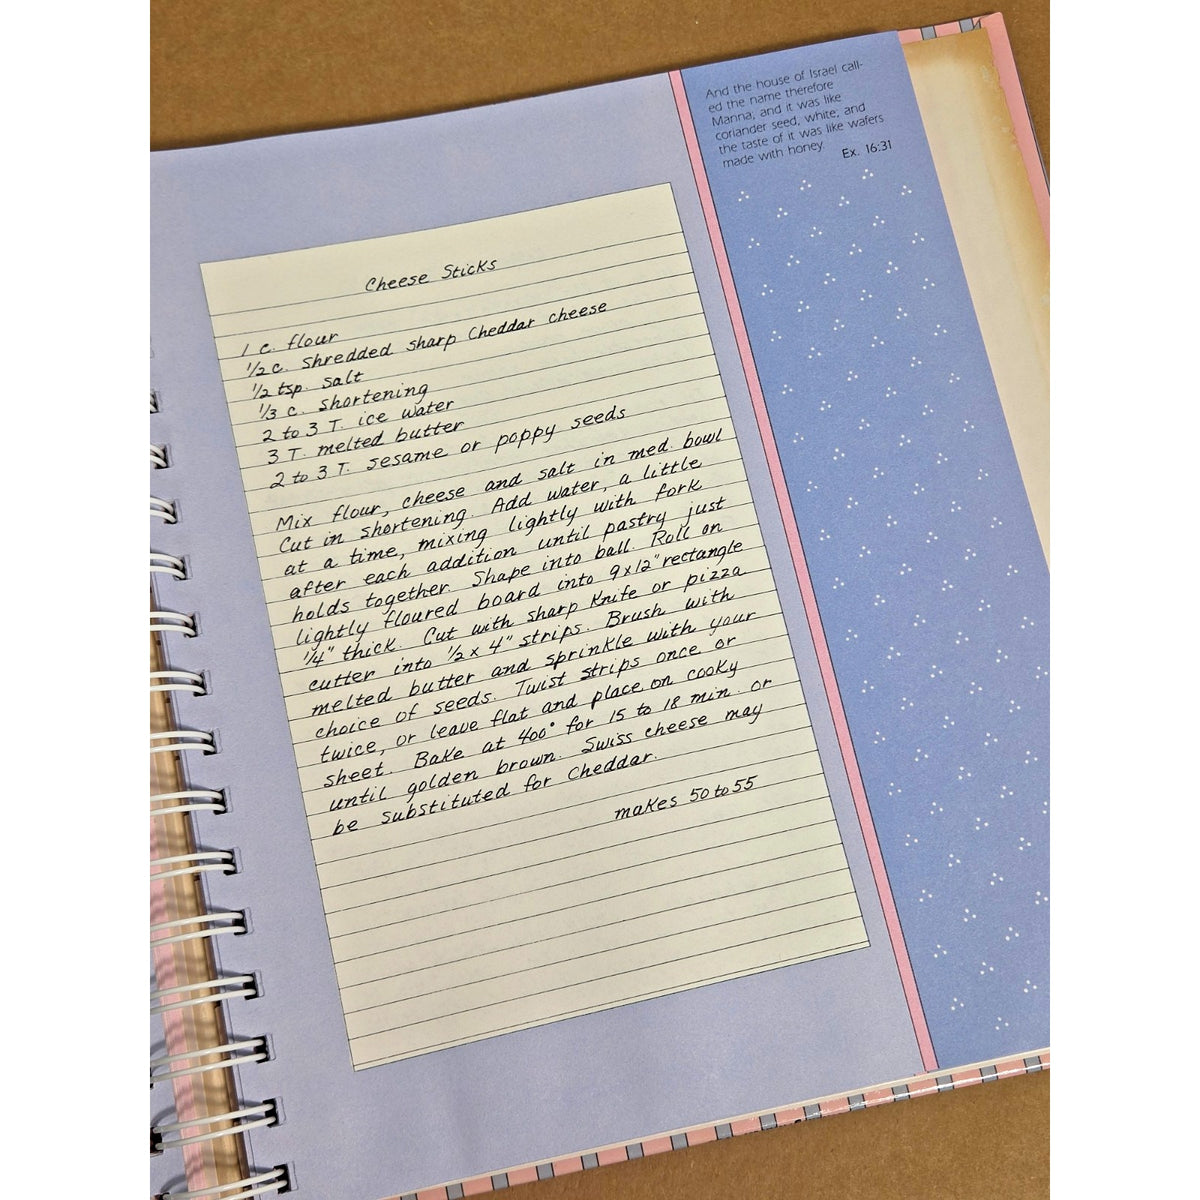 And the house of Israel call-
ed the name therefore
Manna; and it was like
coriander seed, white; and
the taste of it was like wafers
made with honey.
Ex. 16:31
Cheese Sticks
1 c. flour
1/2 c. shredded sharp Cheddar cheese
1/2 tsp. salt
1/3 c. shortening
2 to 3 T. ice water
3 T. melted butter
2 to 3 T. sesame or poppy seeds
Mix flour, cheese and salt in med. bowl
Cut in shortening. Add water, a little
at a time, mixing lightly with fork
after each addition until pastry just
holds together. Shape into ball. Roll on
lightly floured board into 9x12" rectangle
1/4" thick. Cut with sharp knife or pizza
cutter into 1/2 x 4" strips. Brush with
melted butter and sprinkle with your
choice of seeds. Twist strips once or
twice, or leave flat and place on cooky
sheet. Bake at 400° for 15 to 18 min. or
until golden brown. Swiss cheese may
be substituted for Cheddar.
makes 50 to 55